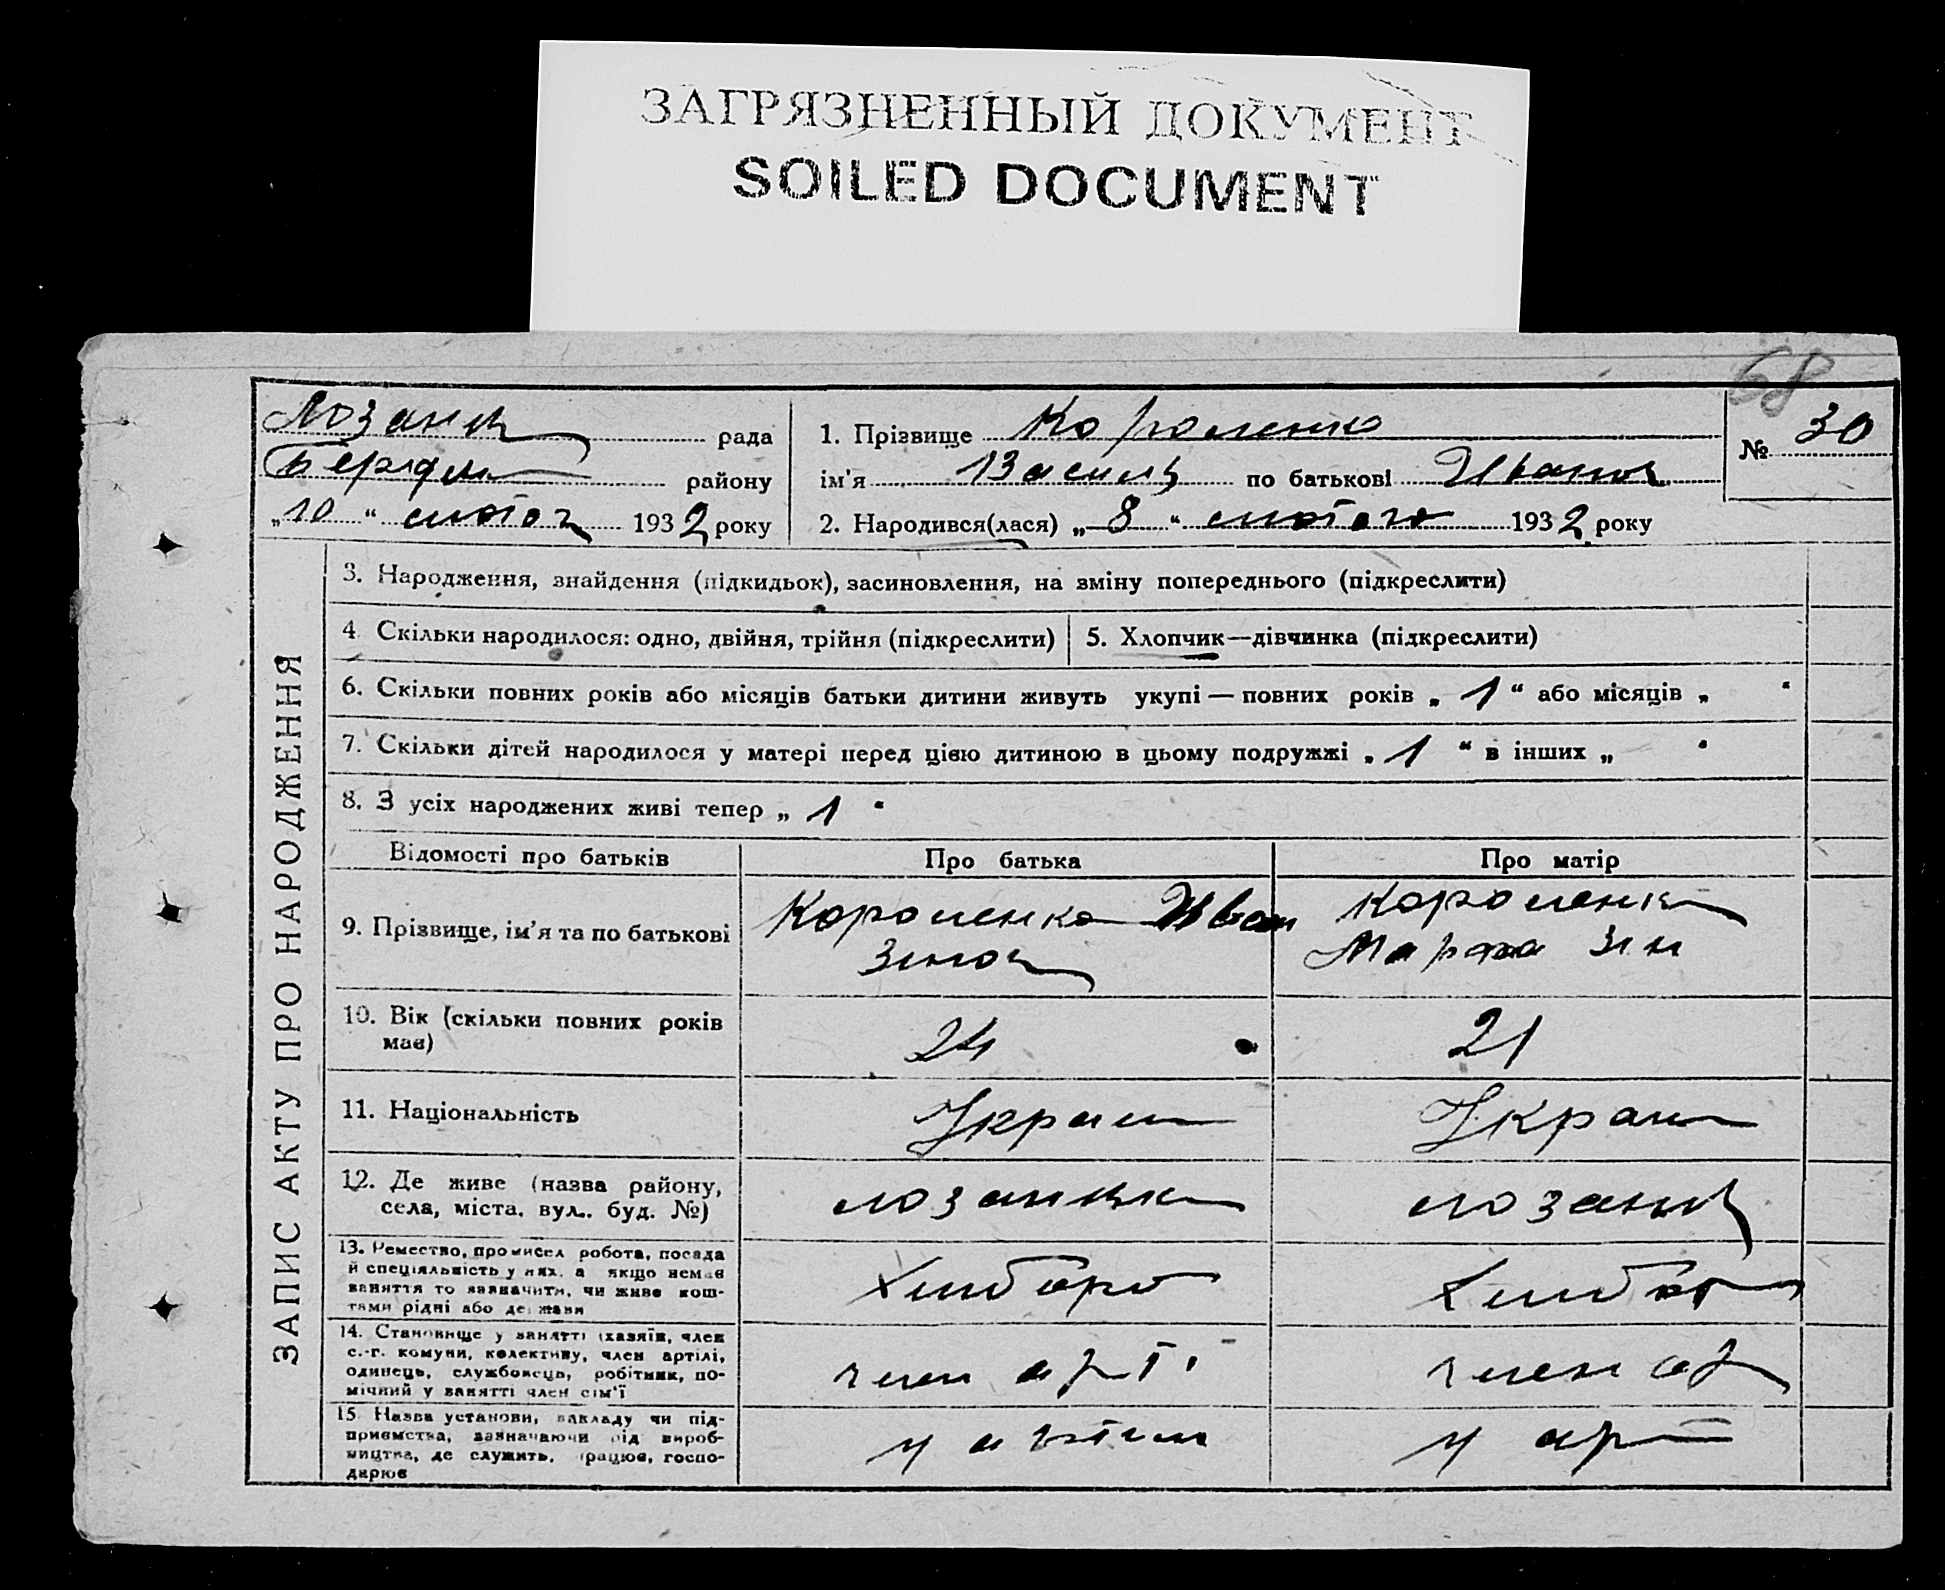 ЗАГРЯЗНЕННЫЙ ДОКУМЕНТ
SOILED DOCUMENT
68
рада
району
„10“ лютого 1932 року
1. Прізвище Короленко
ім'я Василь по батькові Иванов
2. Народився(лася) „8“ лютого 1932 року
№ 30
ЗАПИС АКТУ ПРО НАРОДЖЕННЯ
3. Народження, знайдення (підкидьок), засиновлення, на зміну попереднього (підкреслити)
4. Скільки народилося: одно, двійня, трійня (підкреслити)
5. Хлопчик—дівчинка (підкреслити)
6. Скільки повних років або місяців батьки дитини живуть укупі — повних років „1“ або місяців „ “
7. Скільки дітей народилося у матері перед цією дитиною в цьому подружжі „1“ в інших „ “
8. З усіх народжених живі тепер „1“
Відомості про батьків
Про батька
Про матір
9. Прізвище, ім'я та по батькові
Короленко Иван
Короленко
Марфа Зин
10. Вік (скільки повних років
має)
24
21
11. Національність
Украин
Украин
12. Де живе (назва району,
села, міста, вул., буд. №)
лозанки
лозанк
13. Ремество, промисел робота, посада
й спеціяльність у них, а якщо немає
заняття то зазначити, чи живе кош-
тами рідні або держави
Хлібороб
Хлібор
14. Становище у занятті (хазяїн, член
с.-г. комуни, колективу, член артілі,
одинець, службовець, робітник, по-
мічний у занятті член сім'ї
член арті
член ар
15. Назва установи, закладу чи під-
приємства, зазначаючи рід вироб-
ництва, де служить, працює, госпо-
дарює
у артілі
у арт